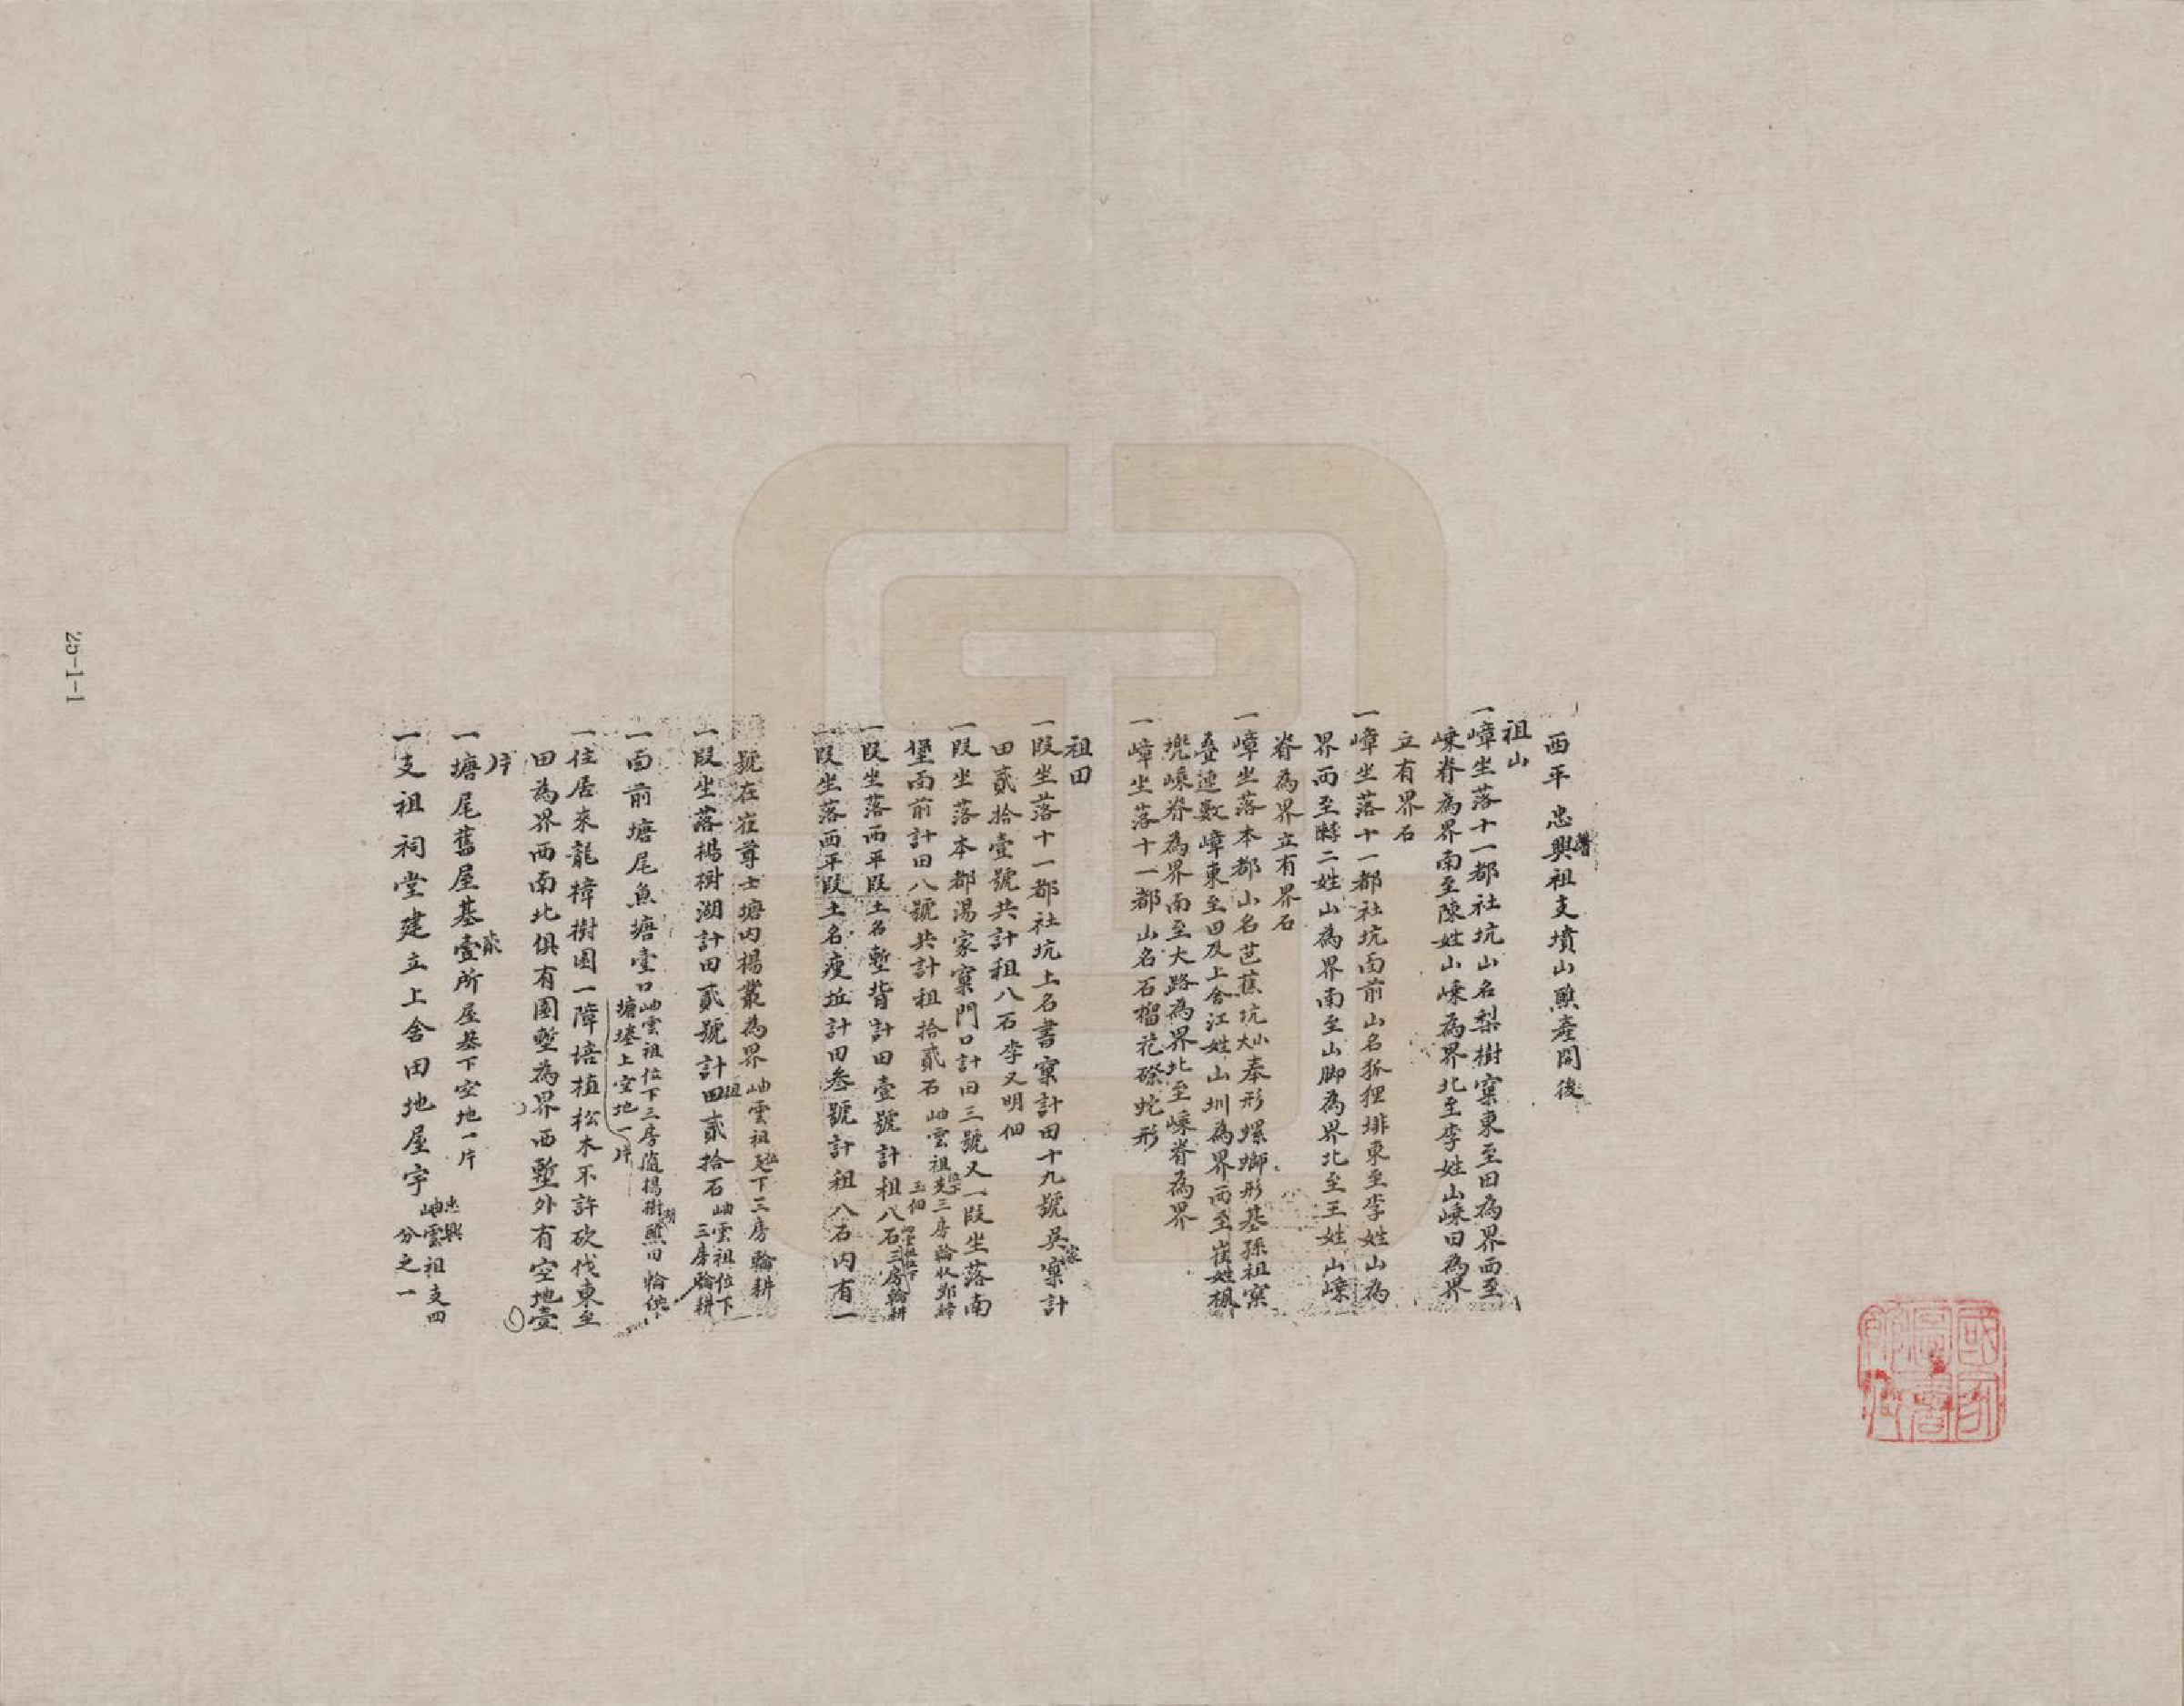 西平忠興祖支墳山㸃產開後
祖山
一嶂坐落十一都社坑山名梨樹窠東至田為界西至
嵊脊為界南至陳姓山嵊為界北至李姓山嵊田為界
立有界石
一嶂坐落十一都社坑面前山名狐狸排東至李姓山為
界西至 二姓山為界南至山脚為界北至王姓山嵊
脊為界立有界石
一嶂坐落本都山名芭蕉坑大小奉形螺螄形基孫祖窠
叠連數嶂東至田及上舍江姓山圳為界西至崔姓楓
兠嵊脊為界南至大路為界北至嵊脊為界
一嶂坐落十一都山名石榴花磜蛇形
祖田
一段坐落十一都社坑土名書窠計田十九號吳家窠計
田貳拾壹號共計租八石李又明佃
一段坐落本都湯家窠門口計田三號又一段坐落南
堡面前計田八號共計租拾貳石岫雲祖 三房輪收
一段坐落西平段土名塹背計田壹號計租八石三房輪耕
一段坐落西平段土名瘦坵計田叁號計租八石内有一
號在崔尊士塘内楊叢為界岫雲祖 下三房輪耕
一段坐落楊樹湖計田貳號計租貳拾石岫雲祖位下三房輪耕
一面前塘尾魚塘壹口岫雲祖位下三房隨楊樹湖㸃田輪供
塘塂上空地一片
一住居來龍樟樹園一障培植松木不許砍伐東至
田為界西南北俱有園塹為界西塹外有空地壹
片
一塘尾舊屋基貳所屋基下空地一片
一支祖祠堂建立上舍田地屋宇忠興岫雲祖支四分之一
25-1-1
國家圖書館藏